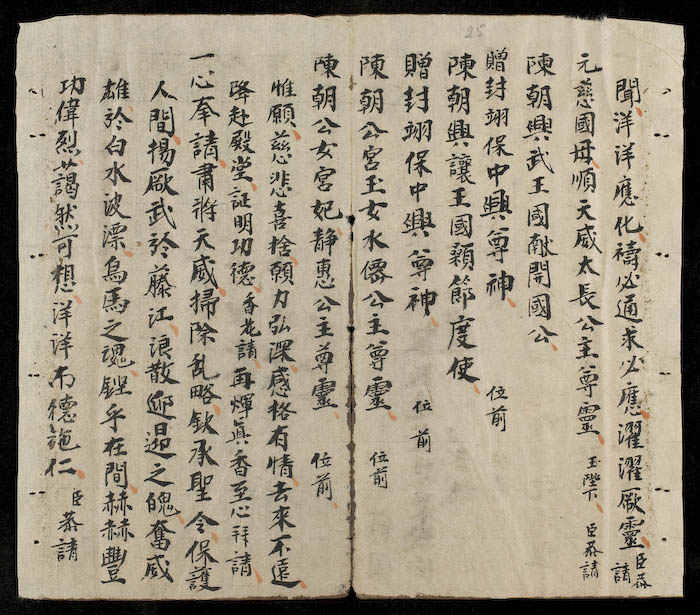 聞洋洋應化禱必通求必應濯濯厥靈臣恭請
元慈國母順天威太長公主尊靈玉陛下臣恭請
陳朝興武王國獻開國公
贈封翊保中興尊神位前
陳朝興讓王國顙節度使
贈封翊保中興尊神位前
陳朝公宮玉女水僊公主尊靈位前
陳朝公女宮妃静惠公主尊靈位前
惟願慈悲喜捨願力弘深感格有情去來不遠
降赴殿堂証明功德香花請再煇眞香至心拜請
一心奉請肅將天威掃除乱略欽承聖令保護
人間揚厥武於藤江浪散迎之魄奮威
雄於白水波漂烏馬之魂鏗乎在間赫赫豐
功偉烈藹然可想洋洋布德施仁臣恭請
25